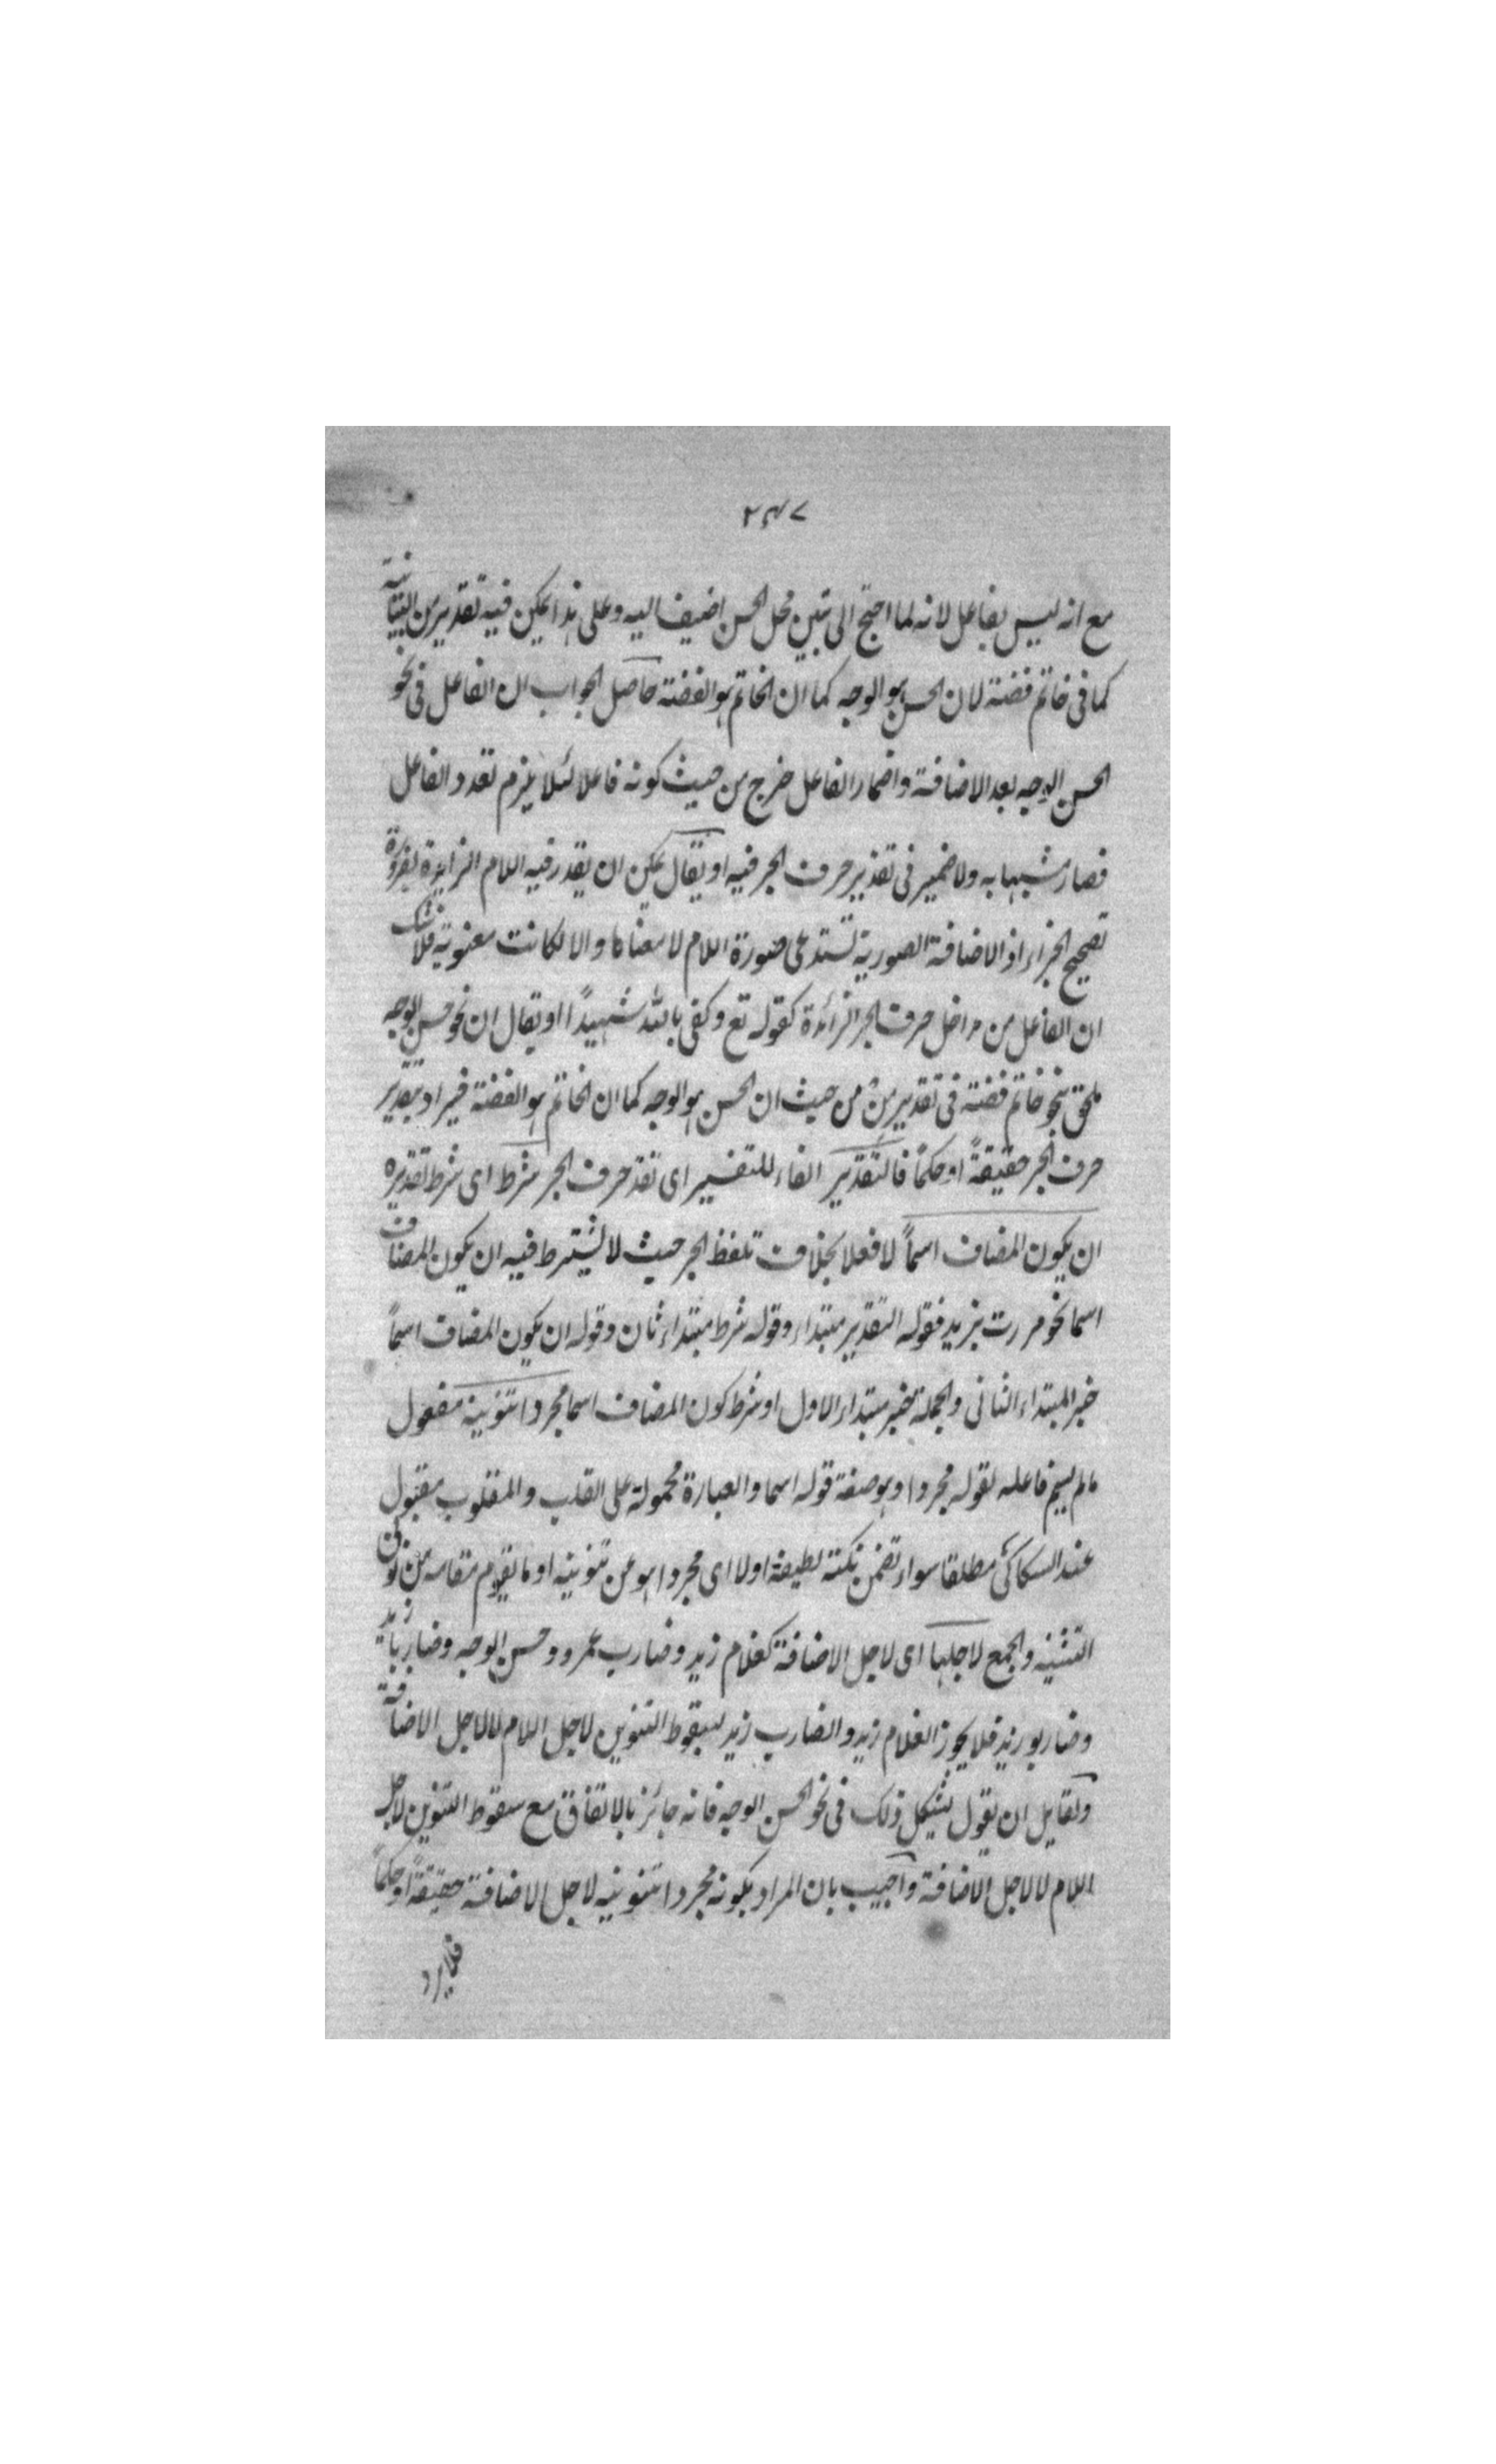 ٢٤٧
مع انه ليس بفاعل لانه لما احتج الى تبين محل الحسن اضيف اليه وعلى هذا يمكن فيه تقدير من البيانية
كما فى خاتم فضة لان الحسن هو الوجه كما ان الخاتم هو الفضة حاصل الجواب ان الفاعل فى نحو
الحسن الوجه بعد الاضافة واضمار الفاعل خرج من حيث كونه فاعلا لئلا يلزم تعدد الفاعل
فصار مشبها به ولا ضمير فى تقدير حرف الجر فيه او يقال يمكن ان يقدر فيه اللام الزايدة لضرورة
تصحيح الجزاء اذ الاضافة الصورية تستدعى صورة اللام لا معناها والا لكانت معنوية فلا شك
ان الفاعل من مداخل حرف الجر الزائدة كقوله تع وكفى بالله شهيداً او يقال ان نحو حسن الوجه
ملحق بنحو خاتم فضة فى تقدير من من حيث ان الحسن هو الوجه كما ان الخاتم هو الفضة فيراد بتقدير
حرف الجر حقيقةً او حكماً فالتقدير الفاء للتفسير اى تقدير حرف الجر شرط اى شرط تقديره
ان يكون المضاف اسماً لا فعلا بخلاف تلفظ الجر حيث لا يشترط فيه ان يكون المضاف
اسما نحو مررت بزيد فقوله التقدير مبتداء وقوله شرط مبتداء ثان وقوله ان يكون المضاف اسماً
خبر المبتداء الثانى والجملة خبر مبتداء الاول او شرط كون المضاف اسما مجردا تنوينه مفعول
مالم يسم فاعله لقوله مجردا وهو صفة قوله اسما والعبارة محمولة على القلب والمقلوب مقبول
عند السكاكى مطلقا سواء تضمن نكتة لطيفة اولا اى مجردا هو عن تنوينه او ما يقوم مقامه من نون
التثنية والجمع لاجلها اى لاجل الاضافة كغلام زيد وضارب عمرو وحسن الوجه وضاربا زيد
وضاربو زيد فلا يجوز الغلام زيد والضارب زيد لسقوط التنوين لاجل اللام لا لاجل الاضافة
ولقايل ان يقول يشكل ذلك فى نحو الحسن الوجه فانه جائز بالاتفاق مع سقوط التنوين لاجل
اللام لا لاجل الاضافة واجيب بان المراد بكونه مجردا تنوينه لاجل الاضافة حقيقةً او حكماً
فلا يرد